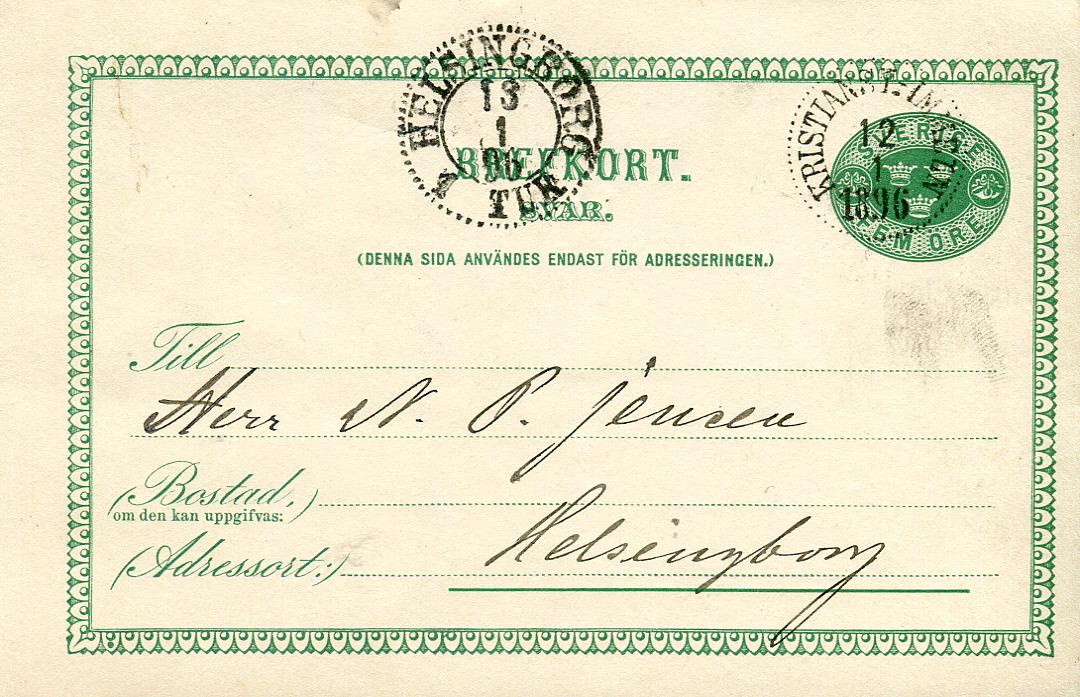 HELSINGBORG
13
1
96
1 TUR
KRISTIANST.-IM
12
1
1896
SVERIGE
FEM ÖRE
BREFKORT.
SVAR.
(DENNA SIDA ANVÄNDES ENDAST FÖR ADRESSERINGEN.)
Till
Herr N. P. Jensen
(Bostad,)
om den kan uppgifvas:
(Adressort:) Helsingborg